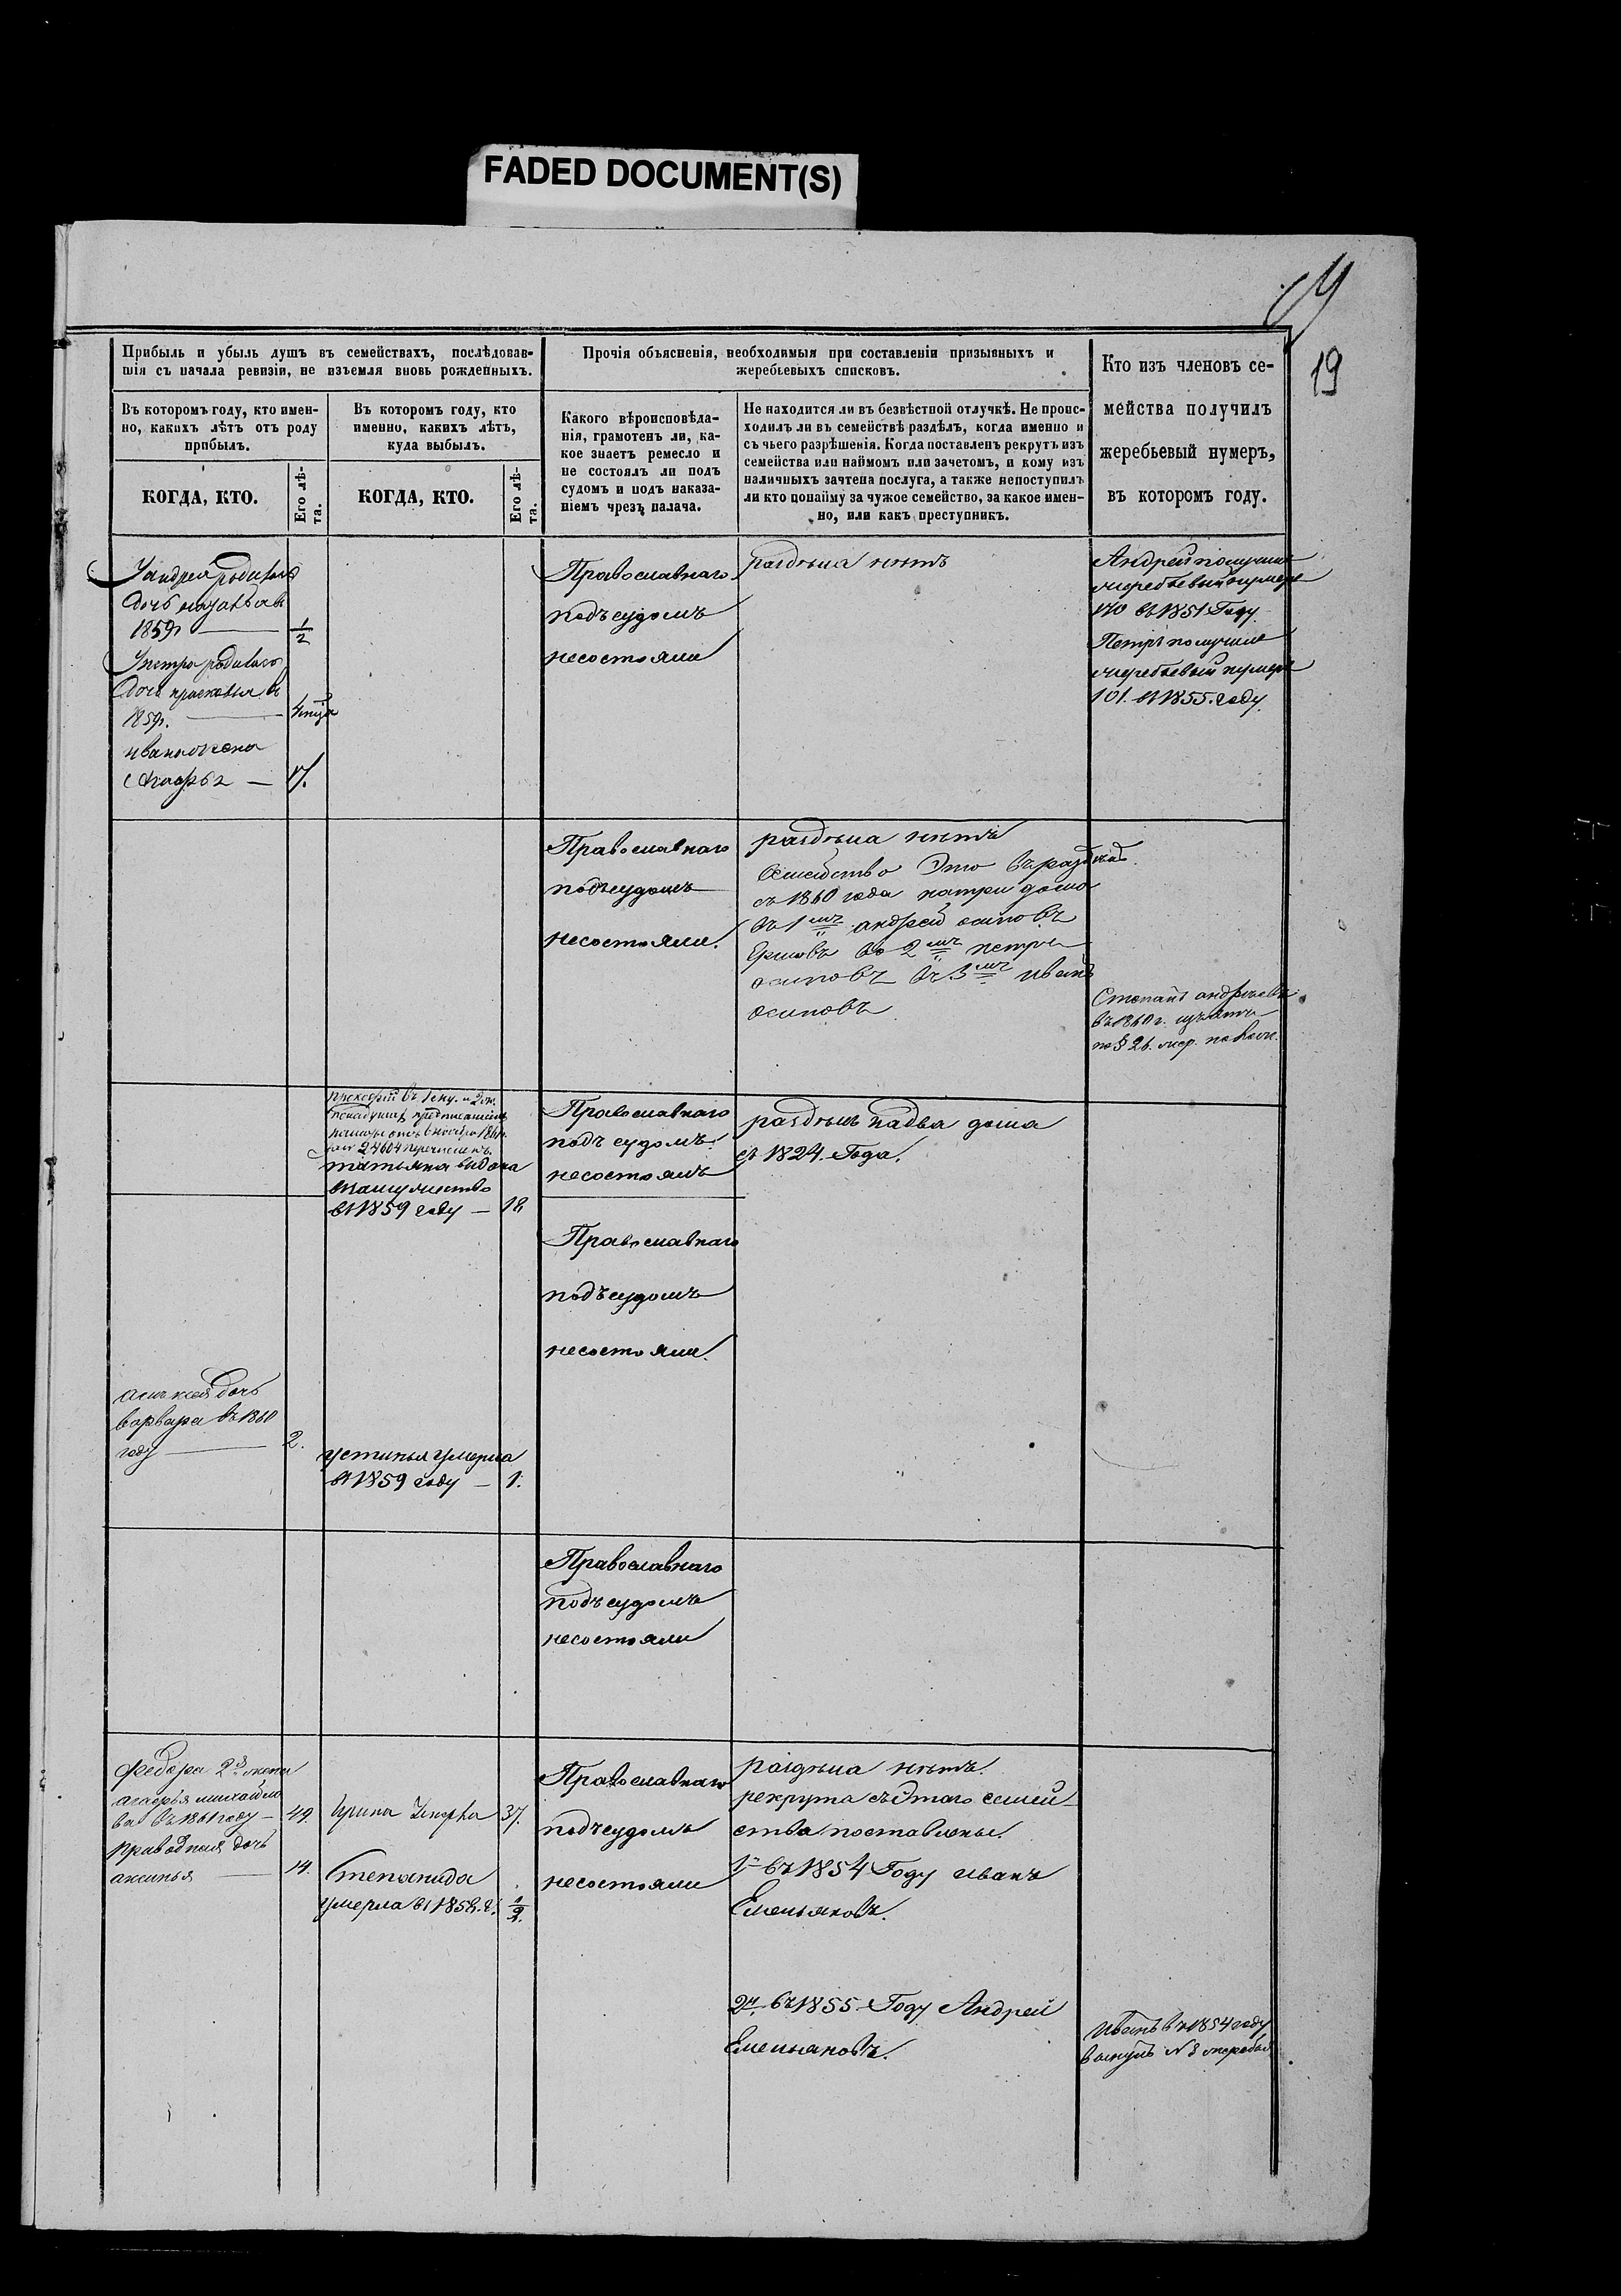 FADED DOCUMENT(S)
19
Прибыль и убыль душъ въ семействахъ, послѣдовав-
шія съ начала ревизіи, не изъемля вновь рожденныхъ.
Прочія объясненія, необходимыя при составленіи призывныхъ и
жеребьевыхъ списковъ.
Кто изъ членовъ се-
мейства получилъ
жеребьевый нумеръ,
въ которомъ году.
Въ которомъ году, кто имен-
но, какихъ лѣтъ отъ роду
прибылъ.
Въ которомъ году, кто
именно, какихъ лѣтъ,
куда выбылъ.
Какого вѣроисповѣда-
нія, грамотенъ ли, ка-
кое знаетъ ремесло и
не состоялъ ли подъ
судомъ и подъ наказа-
ніемъ чрезъ палача.
Не находится ли въ безвѣстной отлучкѣ. Не проис-
ходилъ ли въ семействѣ раздѣлъ, когда именно и
съ чьего разрѣшенія. Когда поставленъ рекрутъ изъ
семейства или наймомъ или зачетомъ, и кому изъ
наличныхъ зачтена послуга, а также непоступилъ
ли кто понайму за чужое семейство, за какое имен-
но, или какъ преступникъ.
КОГДА, КТО.
Его лѣ-
та.
КОГДА, КТО.
Его лѣ-
та.
У андрея родилась
дочь
1859г — 1/2
У петра родилась
дочь прасковья въ
1859г. —
ивана жена
— 17.
Православнаго
подъ судомъ
несостояли
раздѣла нѣтъ
Андрей получилъ
жеребьевый нумеръ
170 въ 1851 Году
Петръ получилъ
жеребьевый нумеръ
101. въ 1855. году.
Православнаго
подъ судомъ
несостояли.
раздѣла нѣтъ
Семейство Это въ раздѣлѣ
съ 1860 года натри дома
въ 1мъ андрей осиповъ
во 2мъ петръ
осиповъ въ 3мъ иванъ
осиповъ
Степанъ андреевъ
въ 1860 г. изъятъ
по § 26. жер. полож.
татьяна выдана
взамужество
въ 1859 году — 18
Православнаго
подъ судомъ
несостоялъ
раздѣлъ надва дома
съ 1824. Года.
Православнаго
подъ судомъ
несостояли.
дочь
варвара въ 1860
году — 2.
устинья умерла
въ 1859 году — 1.
Православнаго
подъ судомъ
несостояли
Федора 2я жена
агафья михайло
ва въ 1861 году — 49.
приводная дочь
аксинья — 14.
Ирина Умерла 37.
Степанида
умерла въ 1858. г. 1/2.
Православнаго
подъ судомъ
несостояли
раздѣла нѣтъ.
рекрута съ Этаго семей-
ства поставлены.
1й въ 1854 Году иванъ
Емельяновъ.
2й въ 1855 Году Андрей
Емельяновъ.
Иванъ въ 1854 году
вынулъ № 8 жеребья